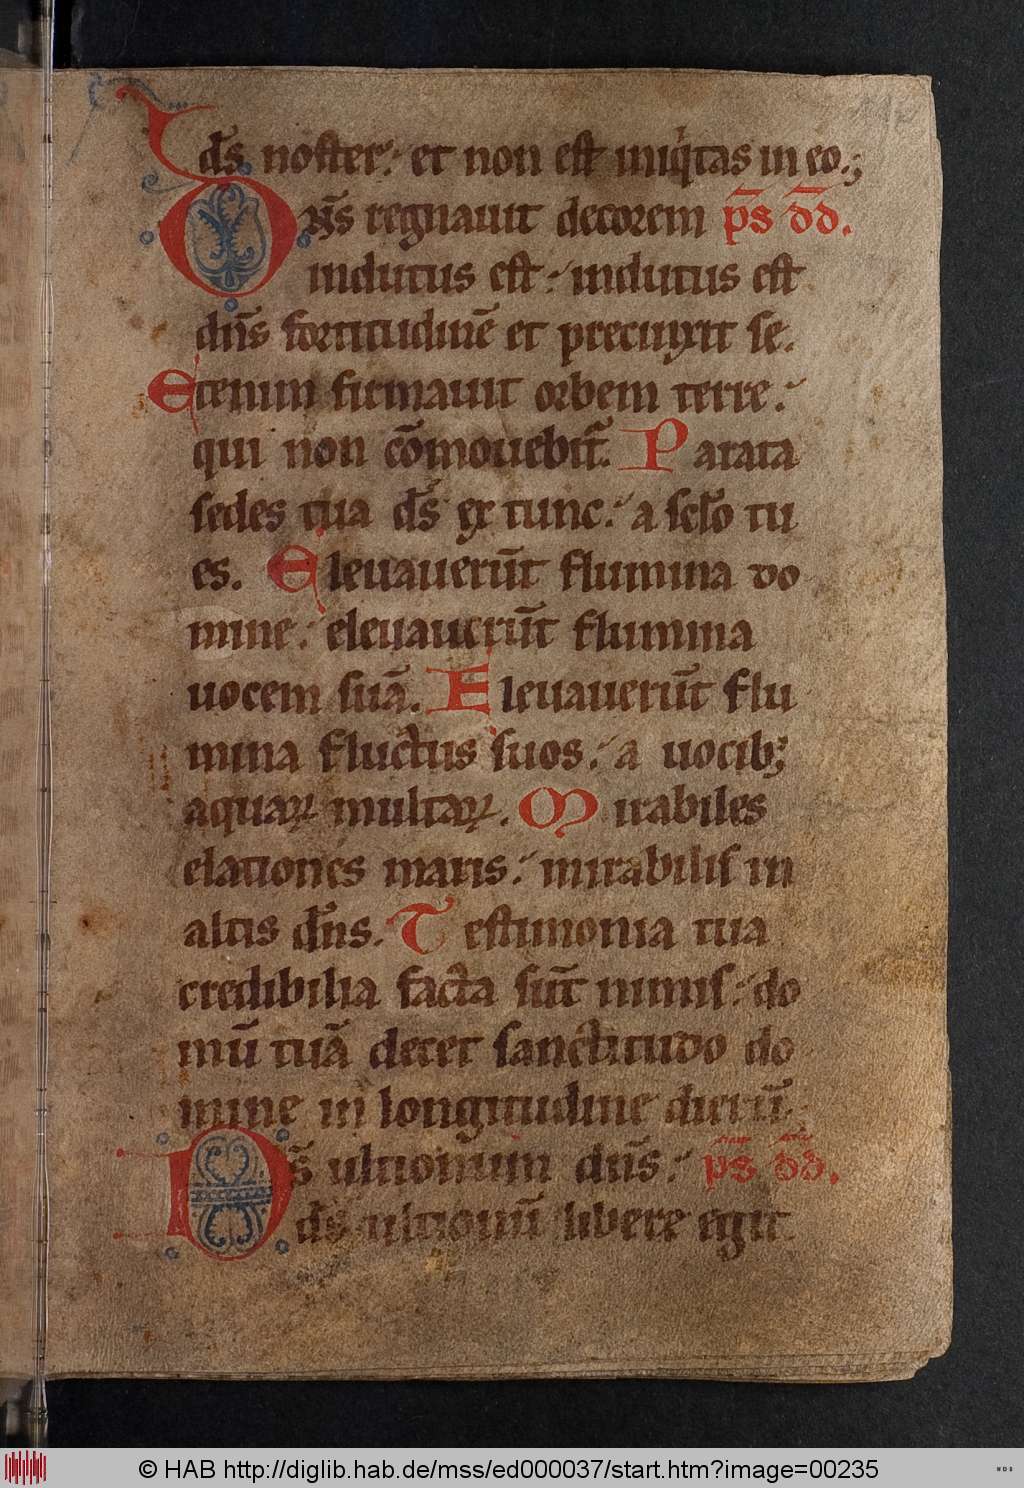 d̄s noster. et non est iniq̇tas in eo.;
Dn̄s regnauit decorem p̄s dd̄.
indutus est. indutus est
dn̄s fortitudinē et precinxit se.
Etenim firmauit orbem terre.
qui non cōmouebit᷑. Parata
sedes tua d̄s ex tunc. a sclo̅ tu
es. Eleuauerūt flumina do
mine. eleuauerūt flumina
uocem suā. Eleuauerūt flu
mina fluctus suos. a uocib;
aquaꝝ multaꝝ. Mirabiles
elationes maris. mirabilis in
altis dn̄s. Testimonia tua
credibilia facta sūt nimis. do
mū tuā decet sanctitudo do
mine in longitudine dierū.
Ds̄ ultionum dn̄s. p̄s dd̄.
d̄s ultionū libere egit
© HAB http://diglib.hab.de/mss/ed000037/start.htm?image=00235